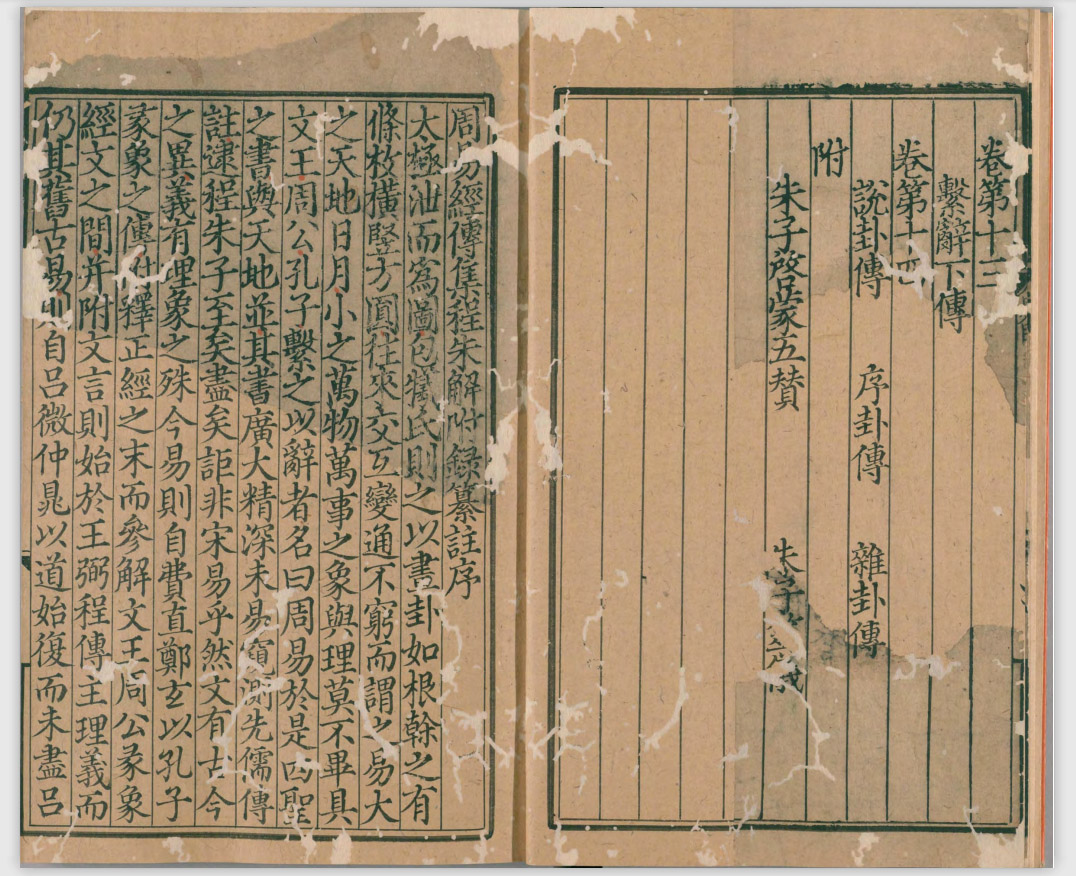 卷第十三
繫辭下傳
卷第十四
說卦傳 序卦傳 雜卦傳
附
朱子啓蒙五贊 朱子筮儀
周易經傳集程朱解附錄纂註序
太極泄而爲圖包犧氏則之以畫卦如根榦之有
條枚橫竪方圓往來交互變通不窮而謂之易大
之天地日月小之萬物萬事之象與理莫不畢具
文王周公孔子繫之以辭者名曰周易於是四聖
之書與天地並其書廣大精深未易窺測先儒傳
註逮程朱子至矣盡矣詎非宋易乎然文有古今
之異義有理象之殊今易則自費直鄭玄以孔子
彖象之傳附釋正經之末而參解文王周公彖象
經文之間并附文言則始於王弼程傳主理義而
仍其舊古易則自呂微仲晁以道始復而未盡呂